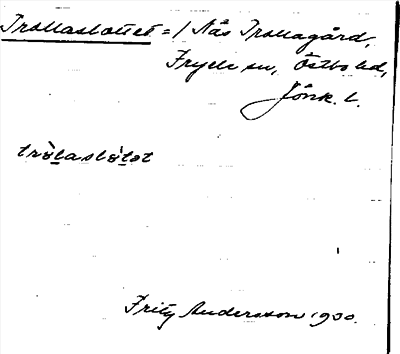 Trollaslottet = / Nås Trollagård,
Fryele sn, Östbo hd,
Jönk. l.
tròlaslòtət
Fritz Andersson 1930.